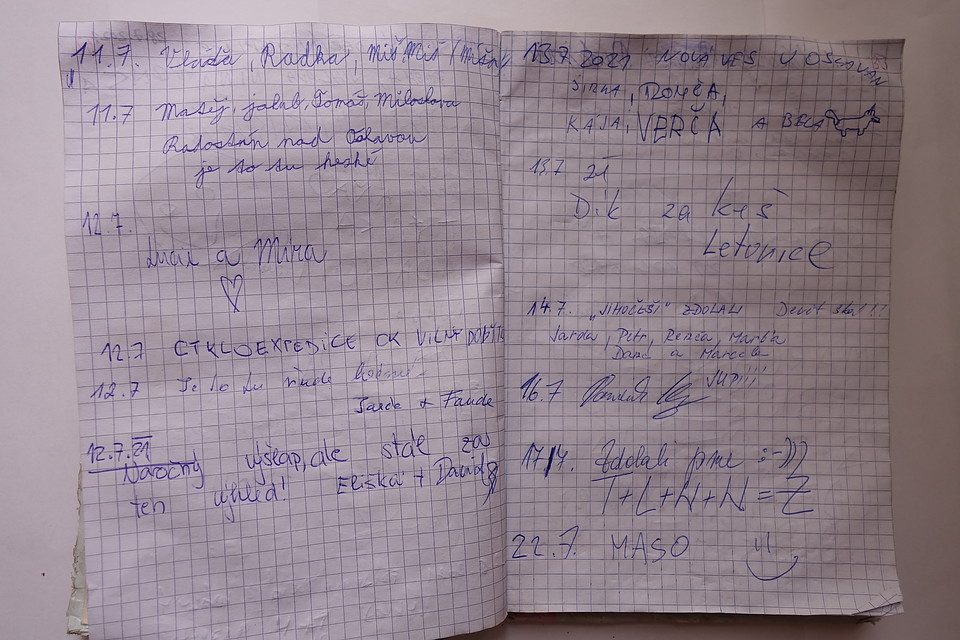 11.7. Vláďa, Radka, Miš Miš
11.7 Matěj, jakub, Tomáš, Miloslava
Radostín nad Oslavou
je to tu hezké
12.7.
a Míra
12.7 CYKLOEXPEDICE CK VILNÝ
12.7 Je to tu všude
Jarda + Fanda
12.7.21
Náročný výšlap, ale stálé za
ten výhled! Eliška + David
13.7.2021 NOVÁ VES U OSLAVAN
ŠÁRKA, TONČA,
KÁJA, VERČA A BELA
13.7 21
Dík za keš
Letonice
14.7. „JIHOČEŠI" ZDOLALI Devět skal!!!
Jarda, Petr, Renča, Marťa
Dana a Marcela
16.7 JUPIIII
17/7. Zdolali jsme :-)))
T+L+N+N=Z
22.7. MASO